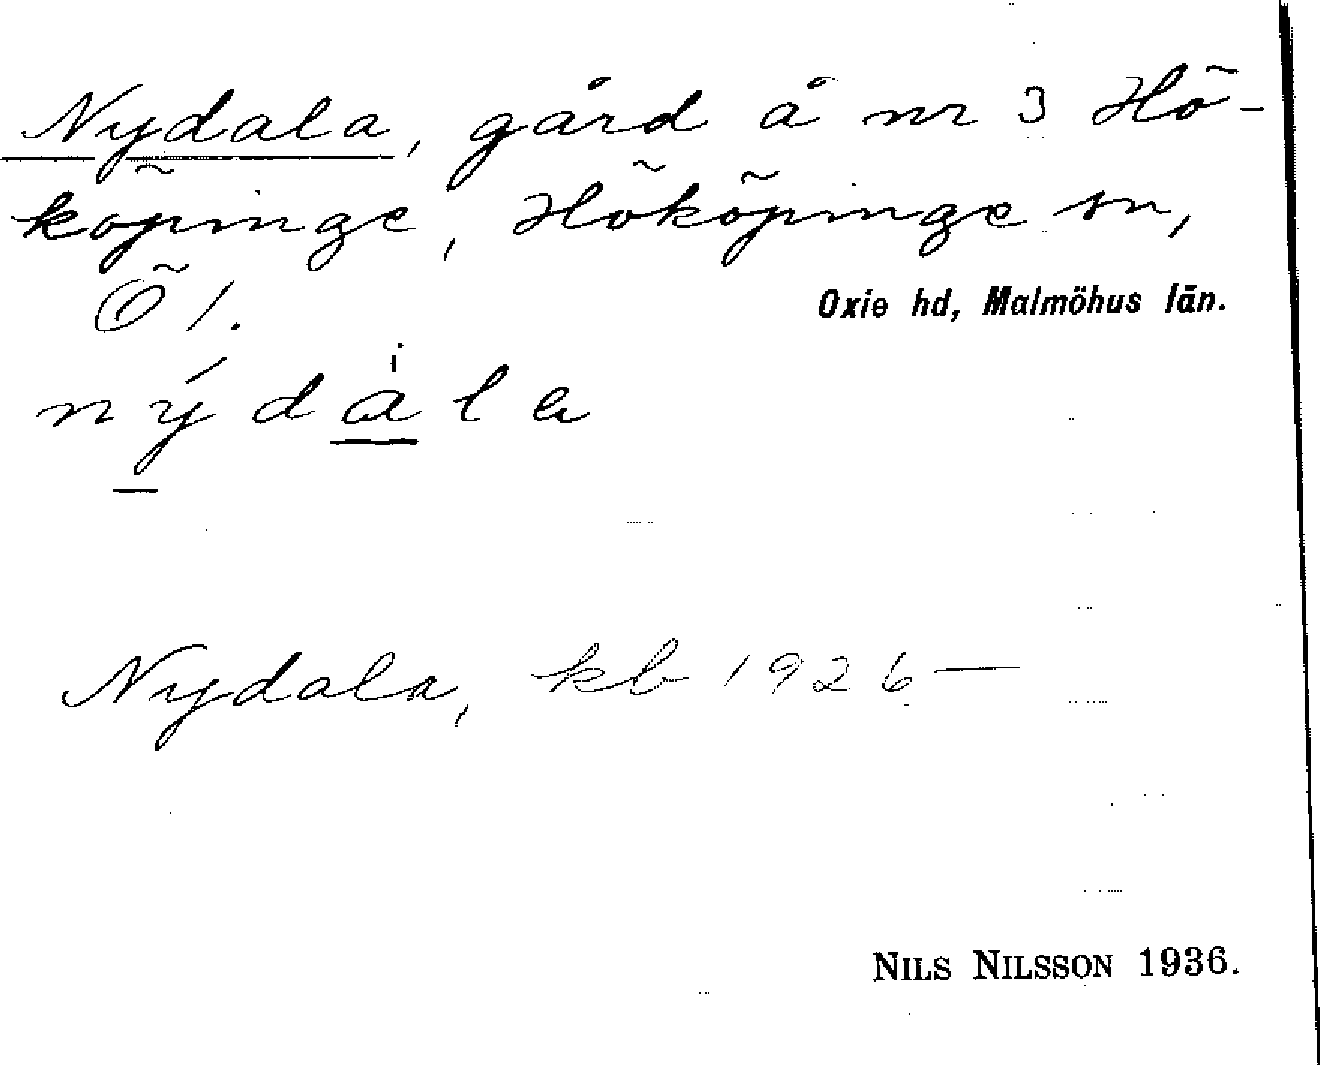 Nydala, gård å nr 3 Hö-
köpinge, Hököpinge sn,
Ö 1.
Oxie hd, Malmöhus län.
nýdàla
Nydala, kb 1926—
NILS NILSSON 1936.